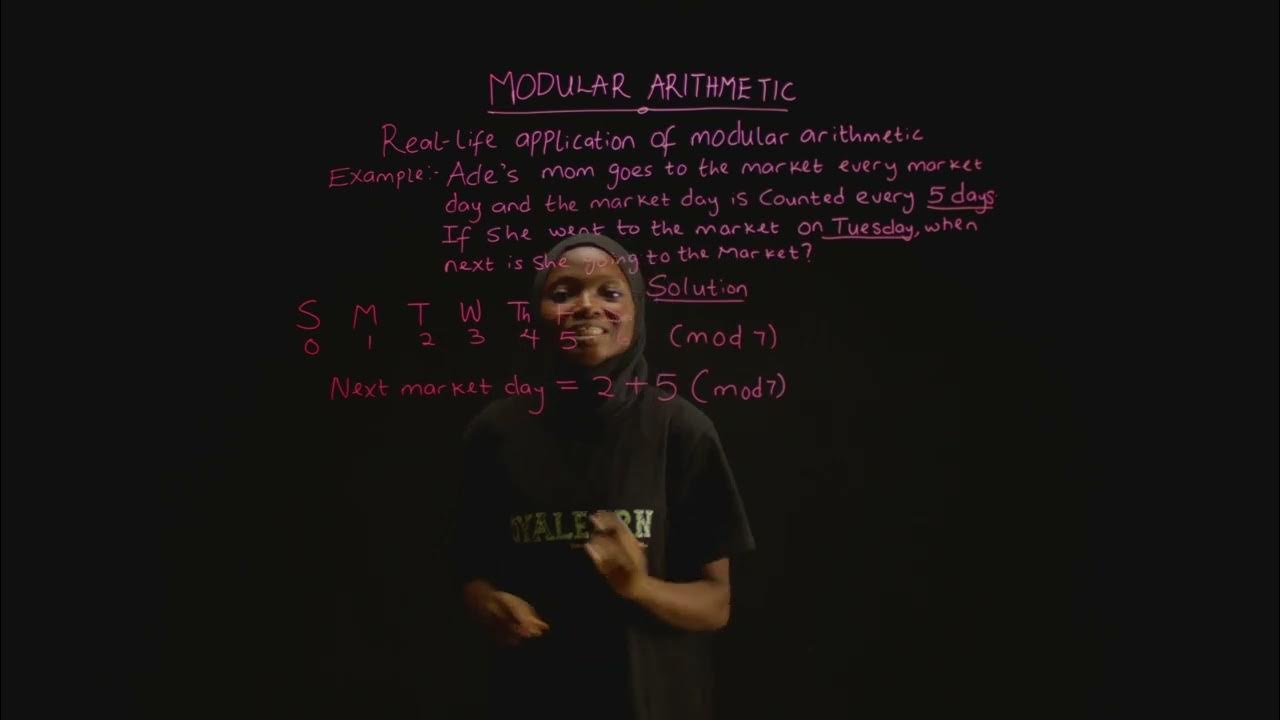 MODULAR ARITHMETIC
Real-life application of modular arithmetic
Example:- Ade's mom goes to the market every market
day and the market day is Counted every 5 days.
If she went to the market on Tuesday, when
next is she going to the Market?
Solution
S M T W Th F S
0 1 2 3 4 5 6 (mod 7)
Next market day = 2 + 5 (mod 7)